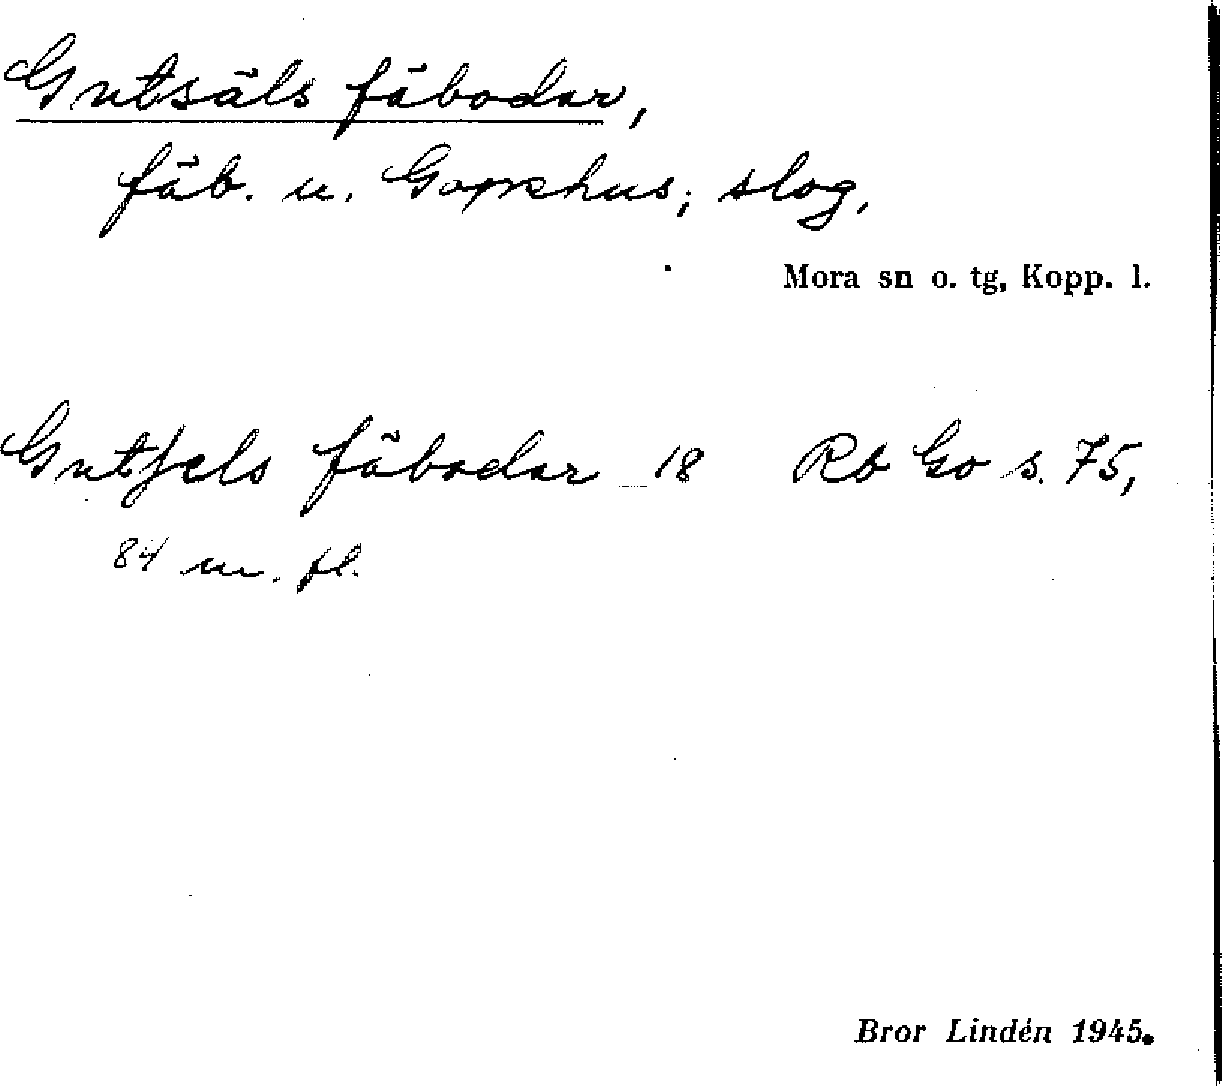 Gutsäls fäbodar,
fäb. u. Gopshus; slog,
Mora sn o. tg, Kopp. l.
Gutsels fäbodar 18 Rb Go s. 75,
84 m. fl.
Bror Lindén 1945.